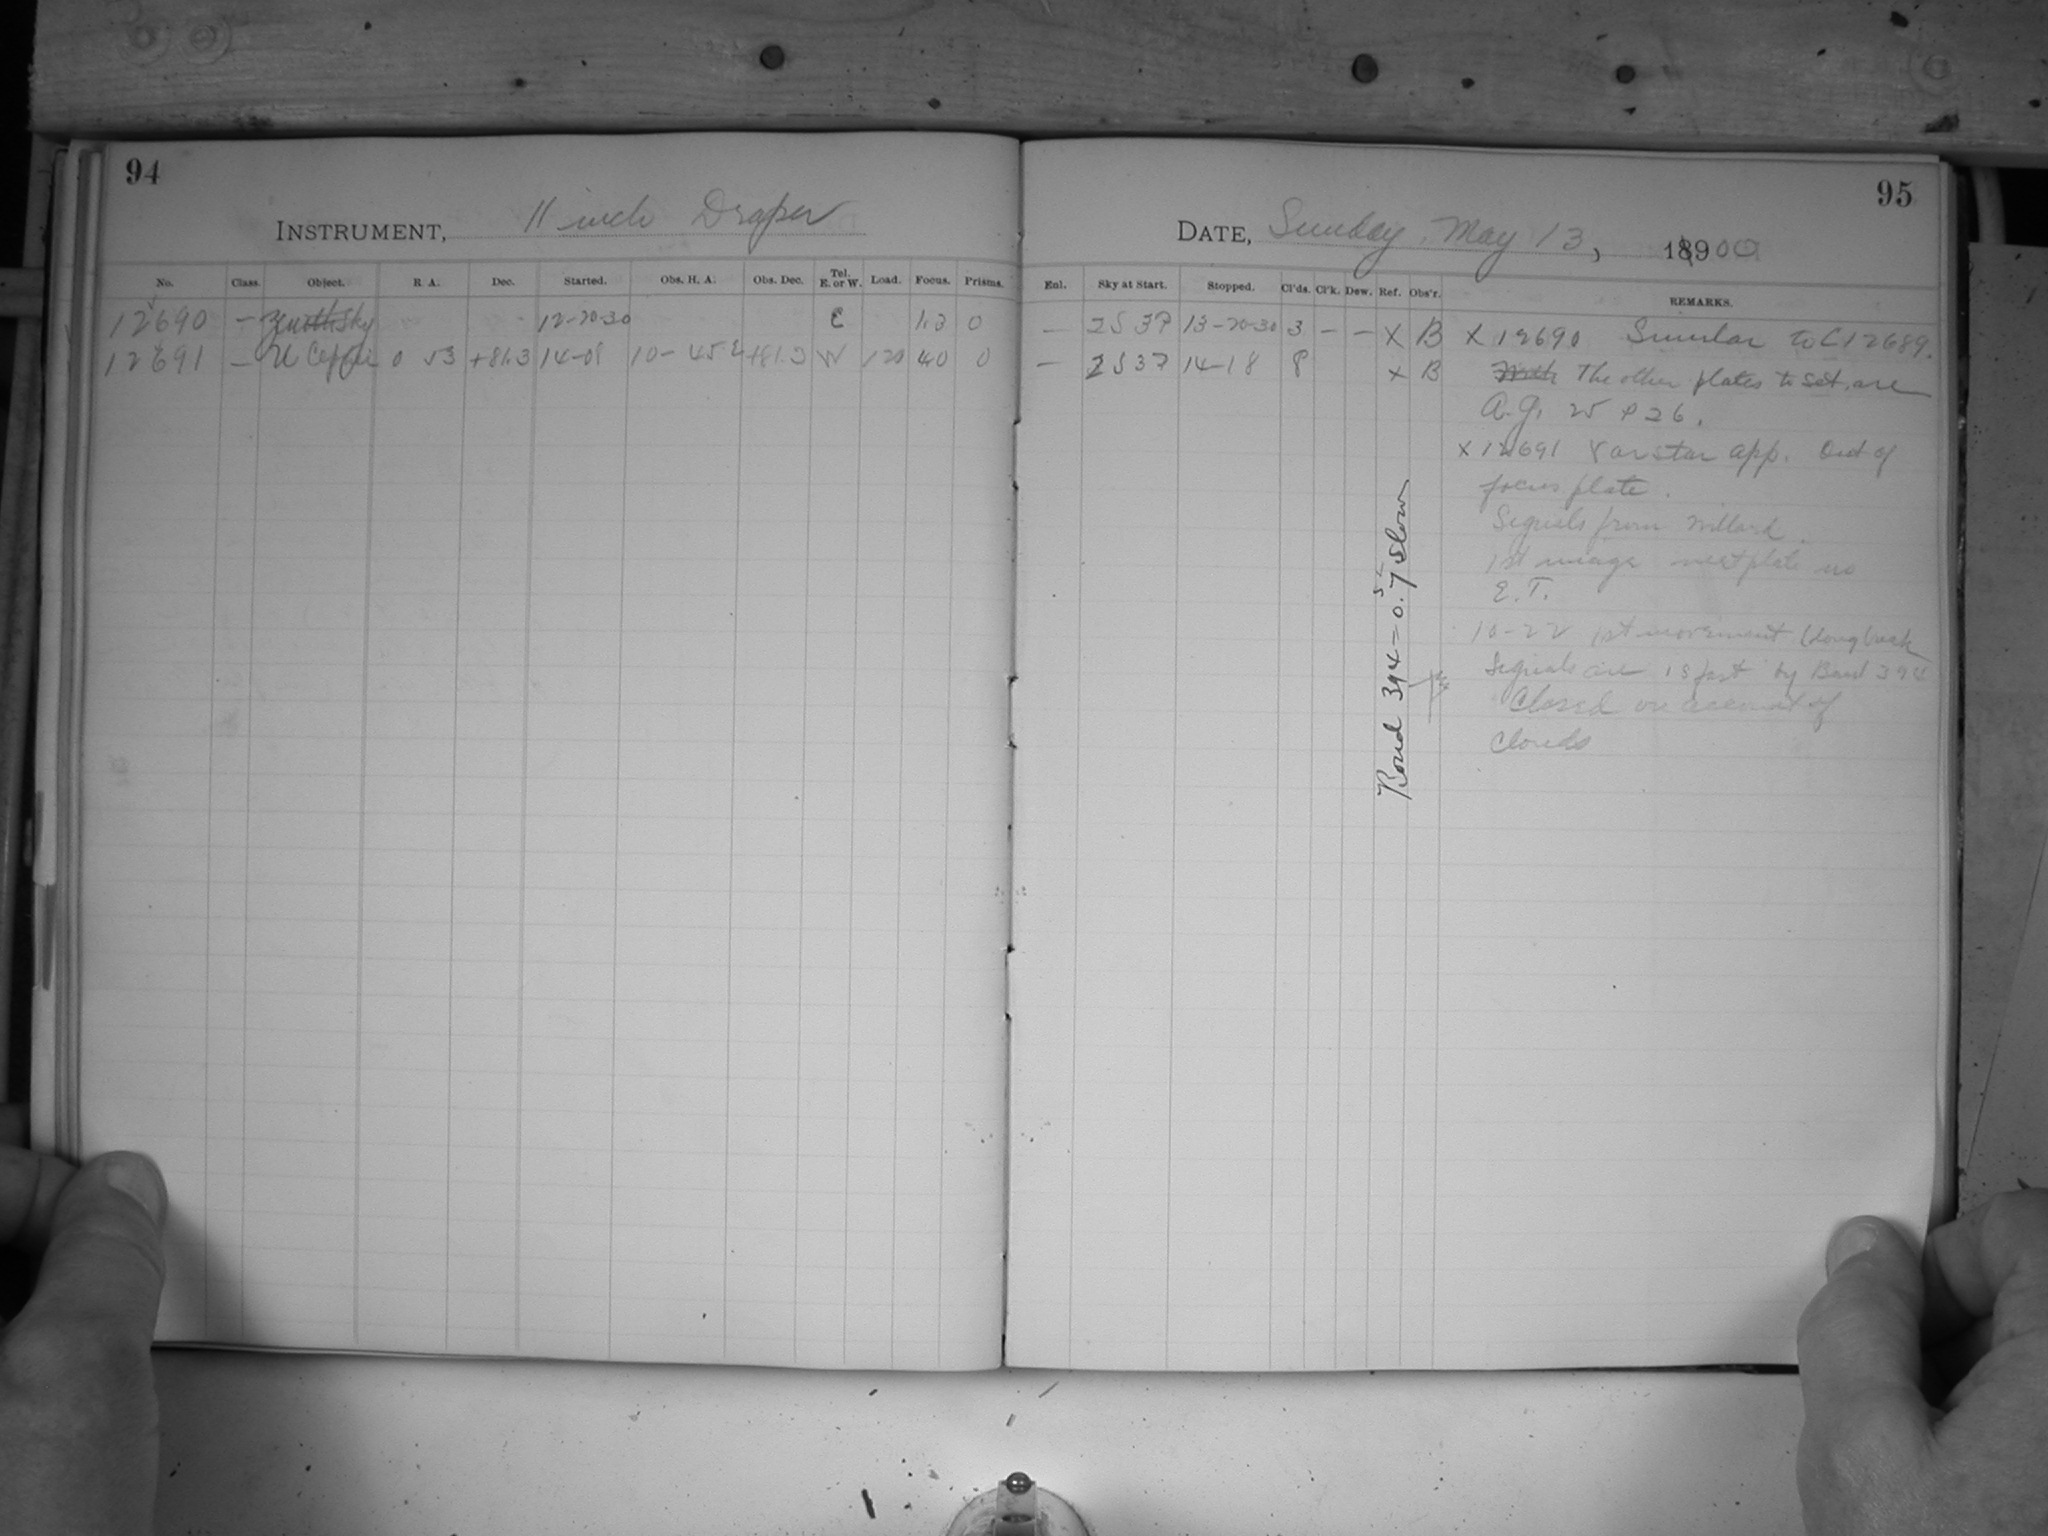 94
INSTRUMENT, 11 inch Draper
No. Class. Object. R A. Dec. Started. Obs. H. A. Obs. Dec. Tel. E. or W. Load. Focus. Prisms.
12690 — Zenith Sky 12-20-30 C 1.3 0
12691 — U Cephei 0 53 +81.3 14-08 10-45 E +81.3 W 120 40 0
95
DATE, Sunday May 13, 1900
Enl. Sky at Start. Stopped. Cl'ds. Cl'k. Dew. Ref. Obs'r. REMARKS.
— 2S 37 13-20-30 3 — — X B X 12690 Similar to C12689.
— 2S 37 14-18 8 X B With The other plates to set, are
A.G. 25 & 26.
X 12691 Var star app. Out of
focus plate.
Signals from Willard.
1st image next plate no
E.T.
10-22 1st movement (long break
Signals are 1s fast by Bond 394
Closed on account of
Clouds
Bond 394 = 0.7 slow